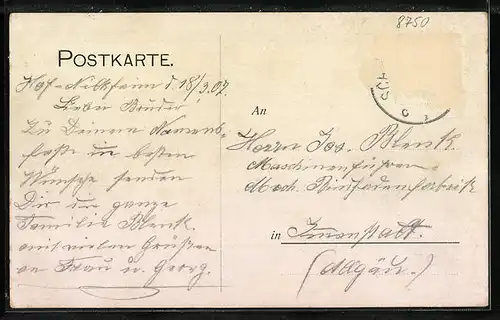 8750
POSTKARTE.
Hof-Nilkheim d. 18/3.07.
Lieber Bruder
Zu Deinem Namens-
feste die besten
Wünsche senden
Dir die ganze
Familie Blenk.
mit vielen Grüßen
an Frau u. Georg.
An
Herrn Jos. Blenk.
Maschinenführer
Mech. Bindfadenfabrik
in Immenstadt.
(Allgäu.)